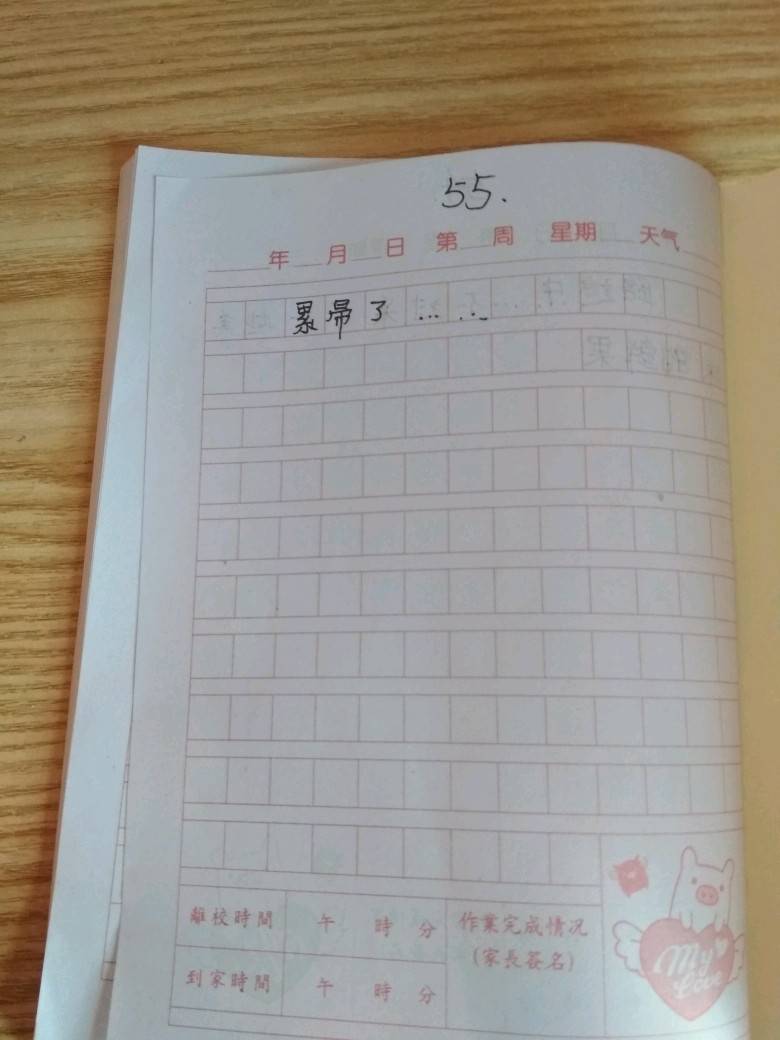 55.
年 月 日 第 周 星期 天气
累帚了……
離校時間 午 時 分 作業完成情况
(家長簽名)
到家時間 午 時 分
My Love